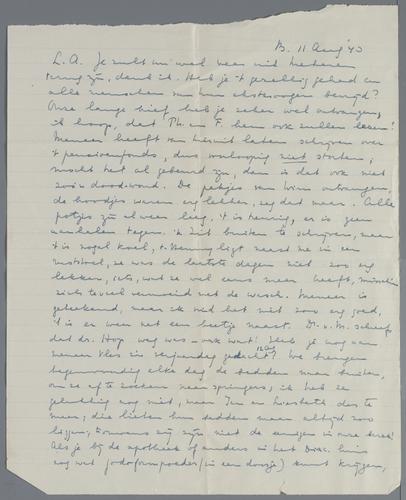 B. 11 Aug '40
L.A. Je zult nu wel weer uit Heteren
terug zijn, denk ik. Heb je 't gezellig gehad en
alle menschen van hun eksteroogen bevrijd?
Onze lange brief heb je zeker wel ontvangen,
ik hoop, dat Ph. en F. hem ook zullen lezen!
Meneer heeft van hieruit laten schrijven over
't pensioenfonds, dus voorloopig niet storten;
mocht het al gebeurd zijn, dan is dat ook niet
zoo'n doodwond. De pakjes van Wim ontvangen,
de koordjes waren erg lekker, zeg dat maar. Alle
potjes zijn al weer leeg, 't is treurig, er is geen
aanhalen tegen. 'k Zit buiten te schrijven, maar
't is nogal koel, ligt naast me in een
ruststoel, ze was de laatste dagen niet zoo erg
lekker, iets, wat ze wel eens meer heeft, misschien
zich teveel vermoeid met de wasch. Meneer is
getekend, maar ik vind het niet zoo erg goed,
't is er weer net een beetje naast. D. v. M. schreef
dat dr. Hop weg was - ook wat! Heb je nog aan
meneer Vles z'n verjaardag gedacht? We brengen
tegenwoordig elke dag de bedden naar buiten,
om ze af te zoeken naar springers; ik heb ze
gelukkig nog niet, maar Jan en Liesbeth des te
meer; die lieten hun bedden maar altijd zoo
liggen; trouwens zij zijn niet de eenigen in onze straat!
Als je bij de apotheek of anders in het Diac. huis
nog wat jodoformpoeder (in een doosje) kunt krijgen,